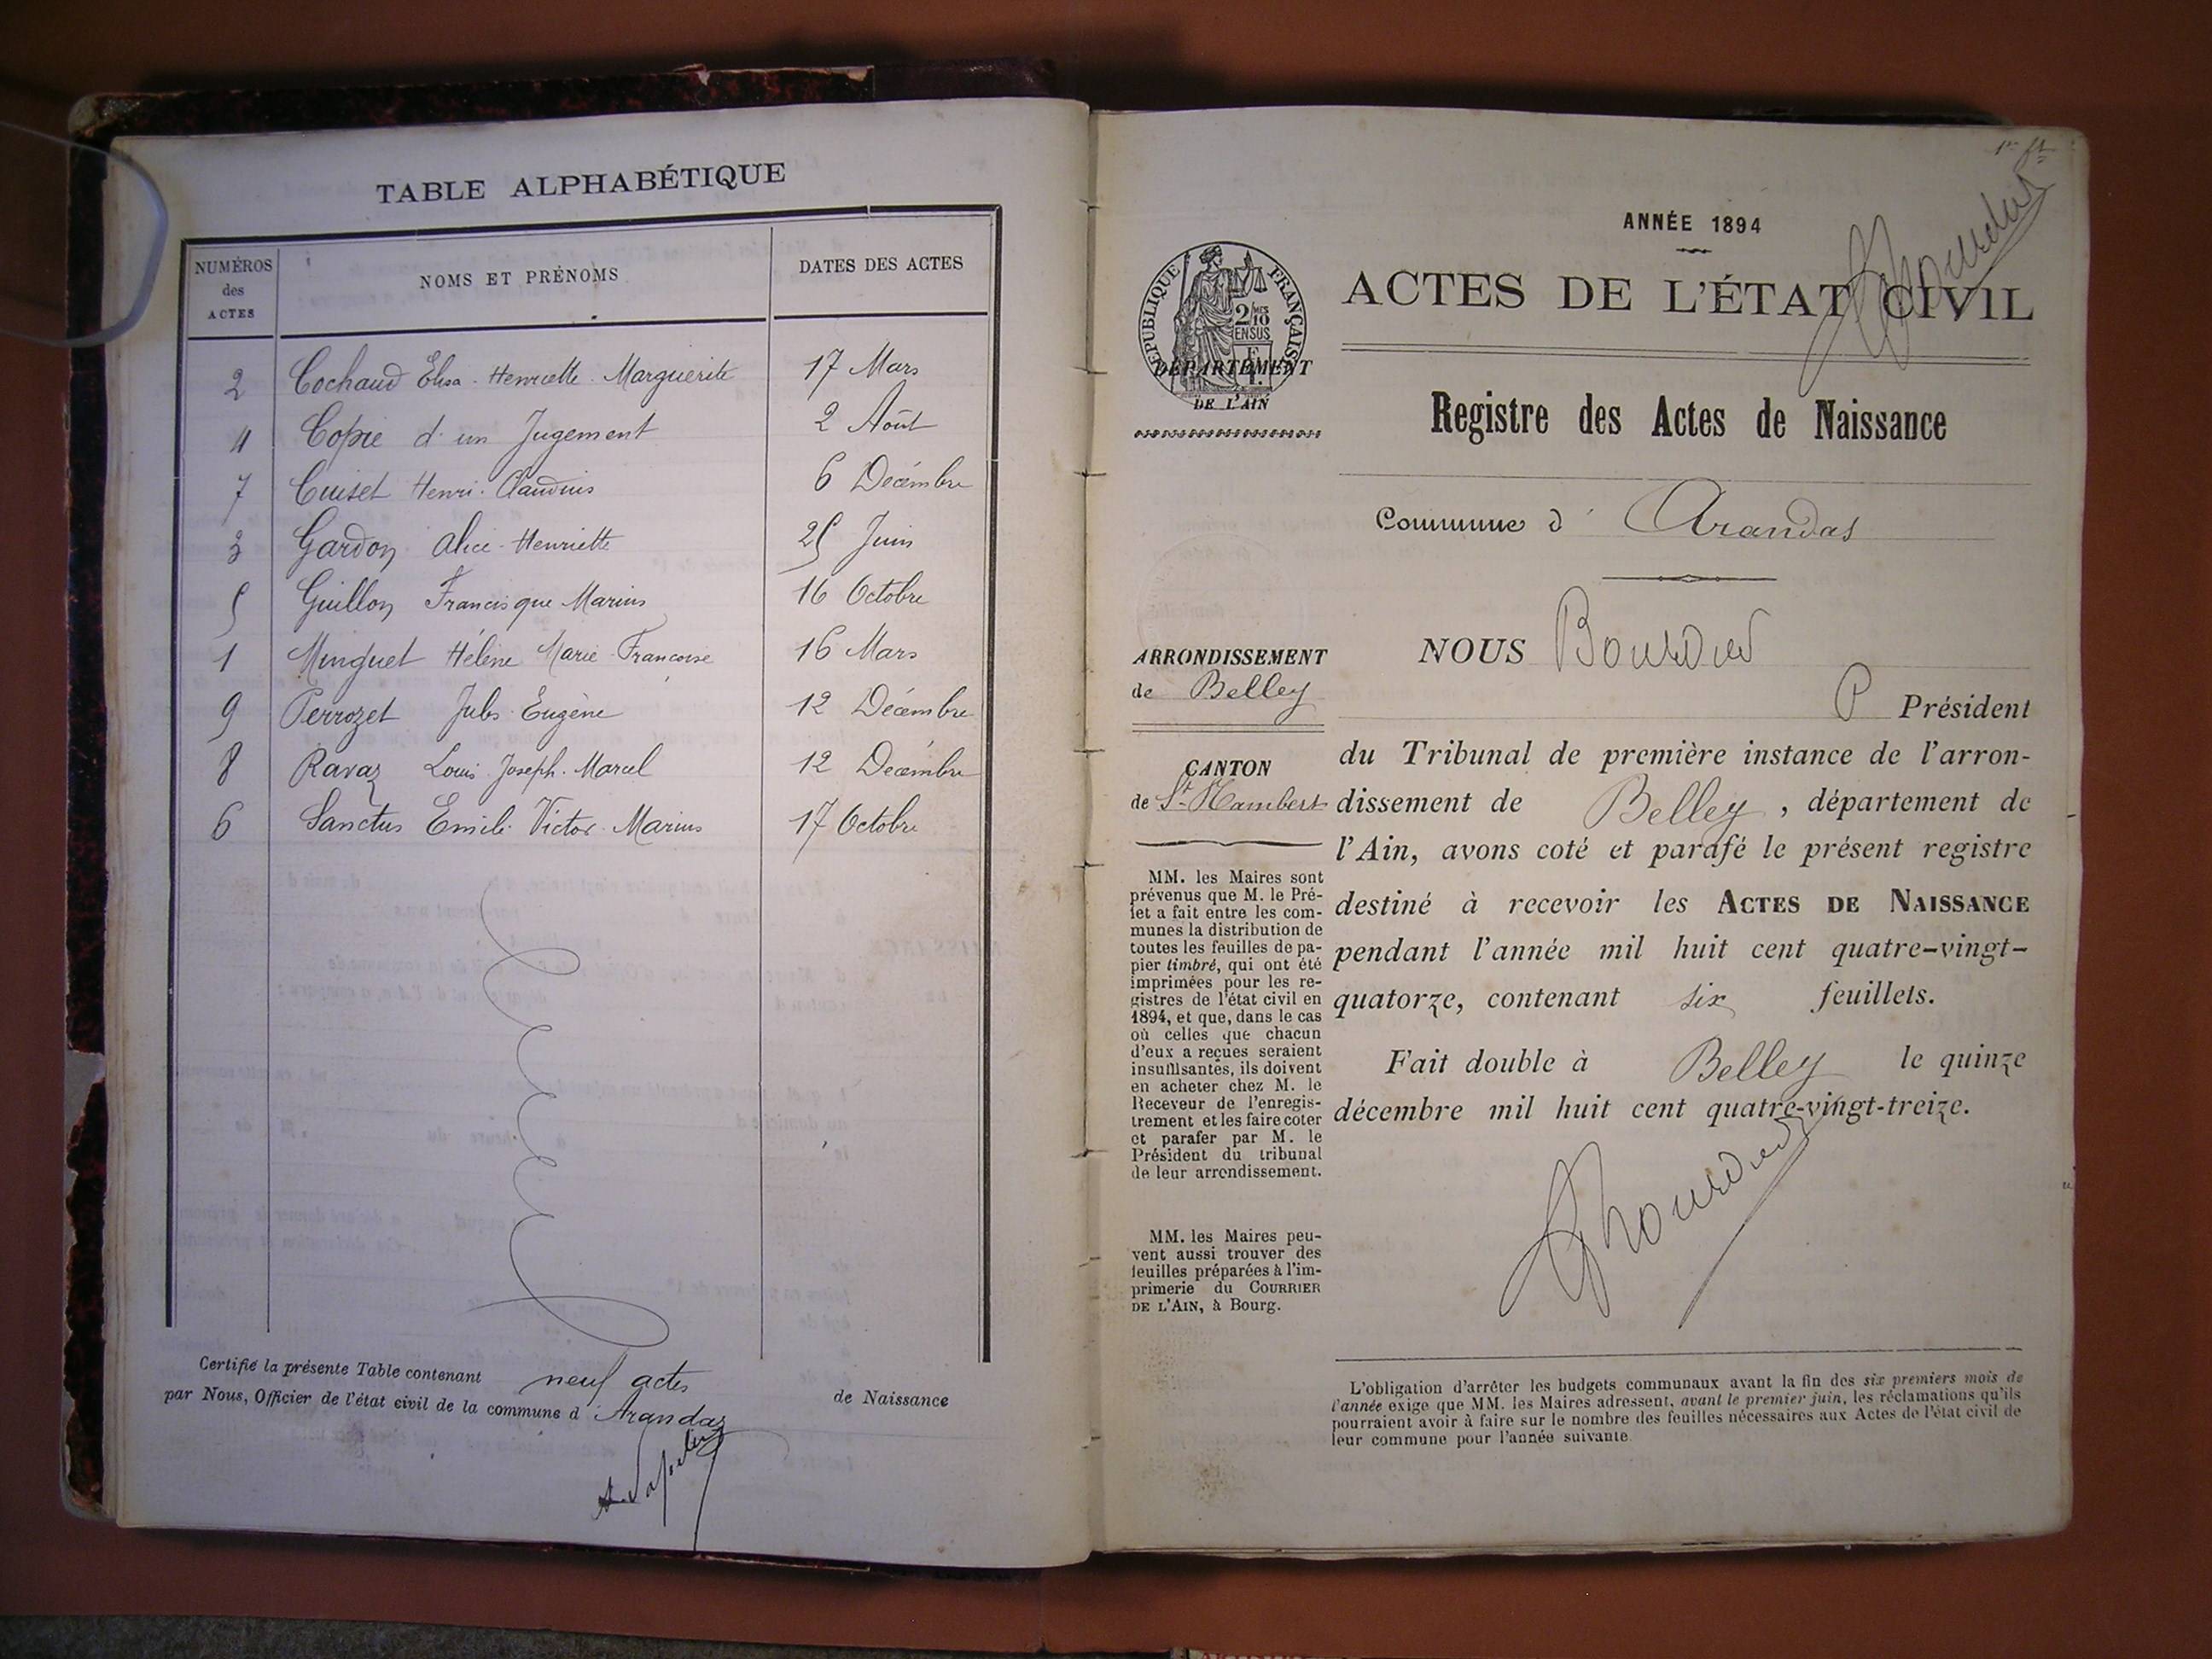 TABLE ALPHABÉTIQUE
NUMÉROS des ACTES NOMS ET PRÉNOMS DATES DES ACTES
2 Cochaud Elisa - Henriette - Marguerite 17 Mars
4 Copie d'un Jugement 2 Août
7 Cuiset Henri - Claudius 6 Décembre
3 Gardon Alice - Henriette 25 Juin
5 Guillon Francisque Marius 16 Octobre
1 Minguet Hélène Marie Françoise 16 Mars
9 Perrozet Jules Eugène 12 Décembre
8 Ravaz Louis Joseph - Marcel 12 Décembre
6 Sanctus Emile Victor - Marius 17 Octobre
Certifié la présente Table contenant neuf actes de Naissance
par Nous, Officier de l'état civil de la commune d'Arandas
1er ft
ANNÉE 1894
ACTES DE L'ÉTAT CIVIL
RÉPUBLIQUE FRANÇAISE
2/10 MES
EN SUS
DÉPARTEMENT
DE L'AIN
Registre des Actes de Naissance
Commune d' Arandas
ARRONDISSEMENT
de Belley
CANTON
de St Rambert
MM. les Maires sont
prévenus que M. le Pré-
fet a fait entre les com-
munes la distribution de
toutes les feuilles de pa-
pier timbré, qui ont été
imprimées pour les re-
gistres de l'état civil en
1894, et que, dans le cas
où celles que chacun
d'eux a reçues seraient
insuffisantes, ils doivent
en acheter chez M. le
Receveur de l'enregis-
trement et les faire coter
et parafer par M. le
Président du tribunal
de leur arrondissement.
MM. les Maires peu-
vent aussi trouver des
feuilles préparées à l'im-
primerie du COURRIER
DE L'AIN, à Bourg.
NOUS Bourdin
P Président
du Tribunal de première instance de l'arron-
dissement de Belley, département de
l'Ain, avons coté et parafé le présent registre
destiné à recevoir les ACTES DE NAISSANCE
pendant l'année mil huit cent quatre-vingt-
quatorze, contenant six feuillets.
Fait double à Belley le quinze
décembre mil huit cent quatre-vingt-treize.
L'obligation d'arrêter les budgets communaux avant la fin des six premiers mois de
l'année exige que MM. les Maires adressent, avant le premier juin, les réclamations qu'ils
pourraient avoir à faire sur le nombre des feuilles nécessaires aux Actes de l'état civil de
leur commune pour l'année suivante.